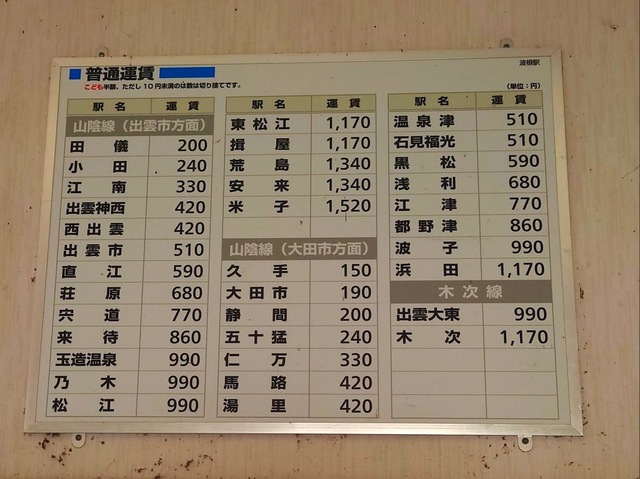 普通運賃
波根駅
こども半額、ただし10円未満のは数は切り捨てです。
(単位:円)
駅名 運賃
山陰線(出雲市方面)
田儀 200
小田 240
江南 330
出雲神西 420
西出雲 420
出雲市 510
直江 590
荘原 680
宍道 770
来待 860
玉造温泉 990
乃木 990
松江 990
駅名 運賃
東松江 1,170
揖屋 1,170
荒島 1,340
安来 1,340
米子 1,520
山陰線(大田市方面)
久手 150
大田市 190
静間 200
五十猛 240
仁万 330
馬路 420
湯里 420
駅名 運賃
温泉津 510
石見福光 510
黒松 590
浅利 680
江津 770
都野津 860
波子 990
浜田 1,170
木次線
出雲大東 990
木次 1,170